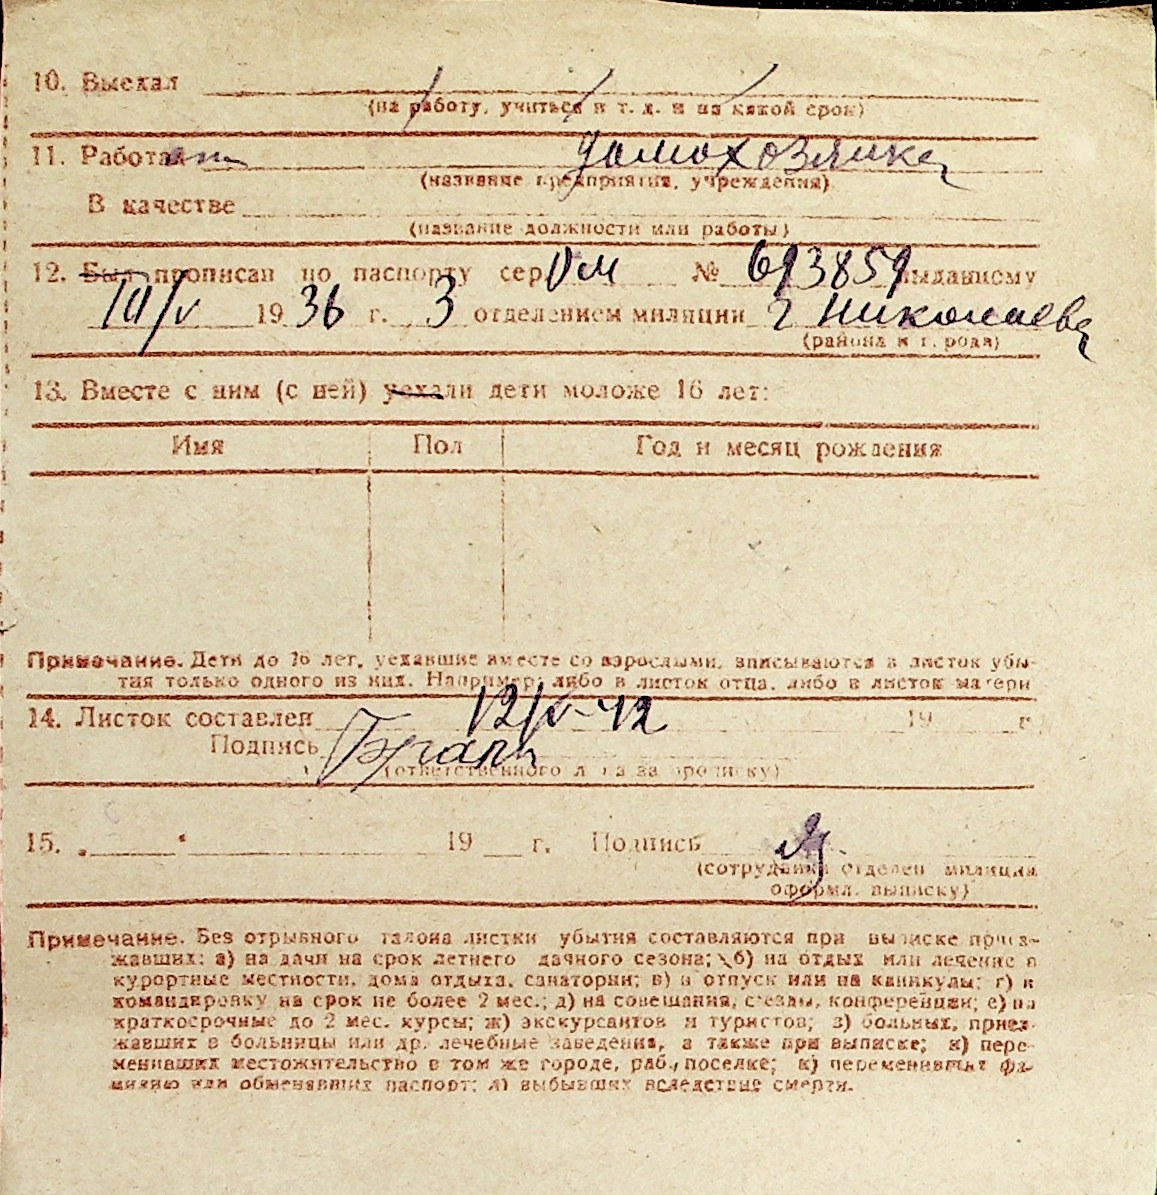 10. Выехал
(на работу, учиться и т. д. и на какой срок)
11. Работает домохозяйка
(название предприятия, учреждения)
В качестве
(название должности или работы)
12. Был прописан по паспорту сер. № 693859 выданному
1936 г. 3 отделением милиции г Николаева
(района и города)
13. Вместе с ним (с ней) уехали дети моложе 16 лет:
Имя Пол Год и месяц рождения
Примечание. Дети до 16 лет, уехавшие вместе со взрослыми, вписываются в листок убы-
тия только одного из них. Например: либо в листок отца, либо в листок матери
14. Листок составлен 12/V-42 19 г.
Подпись
(ответственного лица за прописку)
15. „ “ 19 г. Подпись
(сотрудника отделен милиции
оформл. выписку)
Примечание. Без отрывного талона листки убытия составляются при выписке приез-
жавших: а) на дачи на срок летнего дачного сезона; б) на отдых или лечение в
курортные местности, дома отдыха, санатории; в) в отпуск или на каникулы; г) в
командировку на срок не более 2 мес.; д) на совещания, съезды, конференции; е) на
краткосрочные до 2 мес. курсы; ж) экскурсантов и туристов; з) больных, приез-
жавших в больницы или др. лечебные заведения, а также при выписке; и) пере-
менивших местожительство в том же городе, раб. поселке; к) переменивших фа-
милию или обменявших паспорт; л) выбывших вследствие смерти.